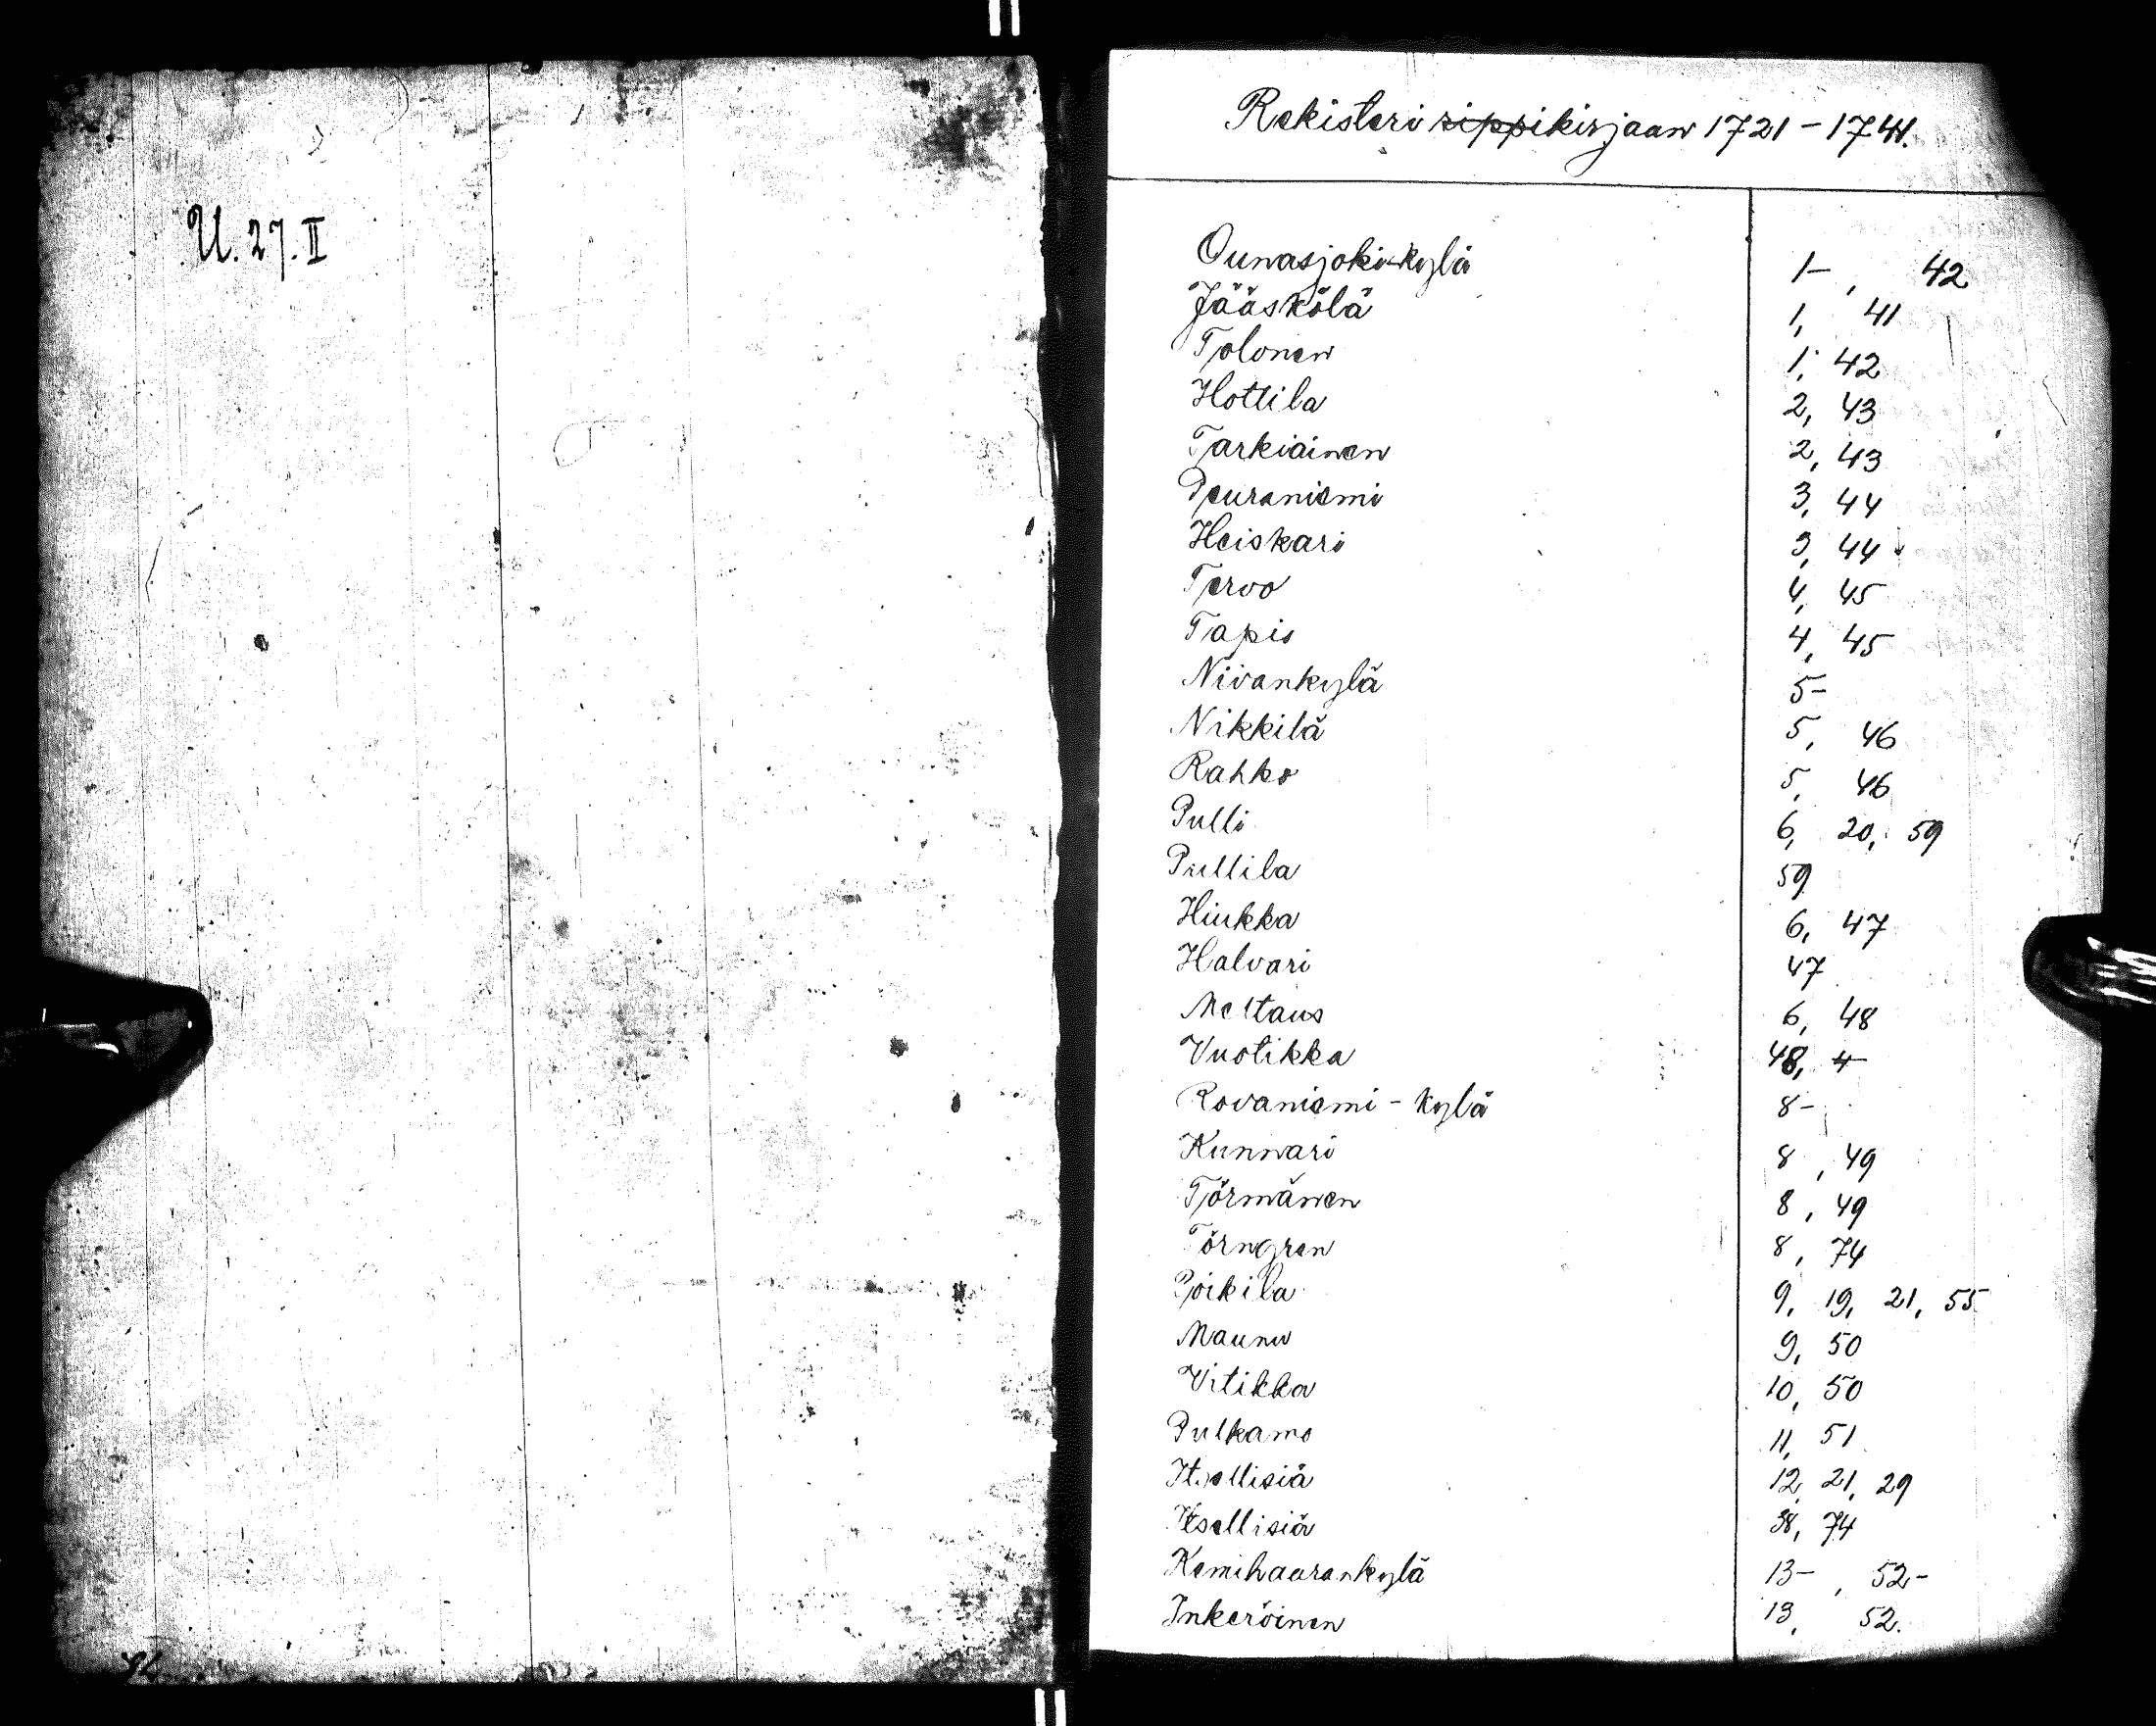 U. 27. II
Rekisteri rippikirjaan 1721-1741.
Ounasjoki-kylä 1-, 42
Jääskölä 1, 41
Tolonen 1, 42
Hottila 2, 43
Tarkiainen 2, 43
Peuraniemi 3, 44
Heiskari 3, 44
Tervo 4, 45
Tapio 4, 45
Nivankylä 5-
Nikkilä 5, 46
Rahko 5, 46
Pulli 6, 20, 59
Pullila 59
Hiukka 6, 47
Halvari 47
Meltaus 6, 48
Vuotikka 48, 4-
Rovaniemi - kylä 8-
Kunnari 8, 49
Törmänen 8, 49
Törngren 8, 74
Poikila 9, 19, 21, 55
Maunu 9, 50
Vitikka 10, 50
Pulkamo 11, 51
Itsellisiä 12, 21, 29
Itsellisiä 38, 74
Kemihaarankylä 13-, 52-
Inkeröinen 13, 52.